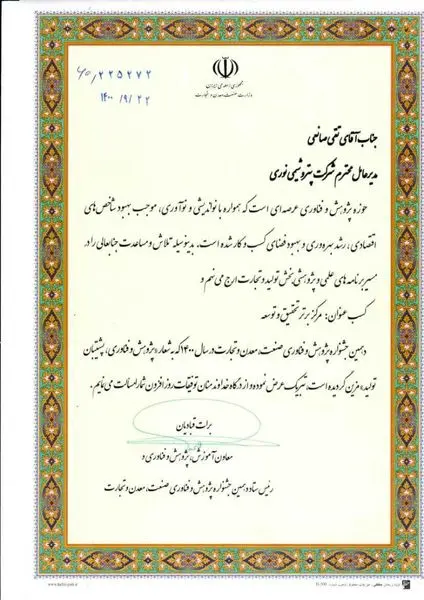 ۶۰/۲۲۵۲۷۲
۱۴۰۰/۹/۲۲
جمهوری اسلامی ایران
وزارت صنعت، معدن و تجارت
جناب آقای تقی صانعی
مدیرعامل محترم شرکت پتروشیمی نوری
حوزه پژوهش و فناوری عرصه‌ای است که همواره با نواندیشی و نوآوری، موجب بهبود شاخص‌های
اقتصادی، رشد بهره‌وری و بهبود فضای کسب و کار شده است. بدینوسیله تلاش و مساعدت جنابعالی را در
مسیر برنامه‌های علمی و پژوهشی بخش تولید و تجارت ارج می‌نهم و
کسب عنوان: مرکز برتر تحقیق و توسعه
دهمین جشنواره پژوهش و فناوری صنعت، معدن و تجارت در سال ۱۴۰۰ که به شعار «پژوهش و فناوری، پشتیبان
تولید» مزین گردیده است، تبریک عرض نموده و از درگاه خداوند منان توفیقات روزافزون شما را مسالت می‌نمایم.
برات قبادیان
معاون آموزش، پژوهش و فناوری و
رئیس ستاد دهمین جشنواره پژوهش و فناوری صنعت، معدن و تجارت